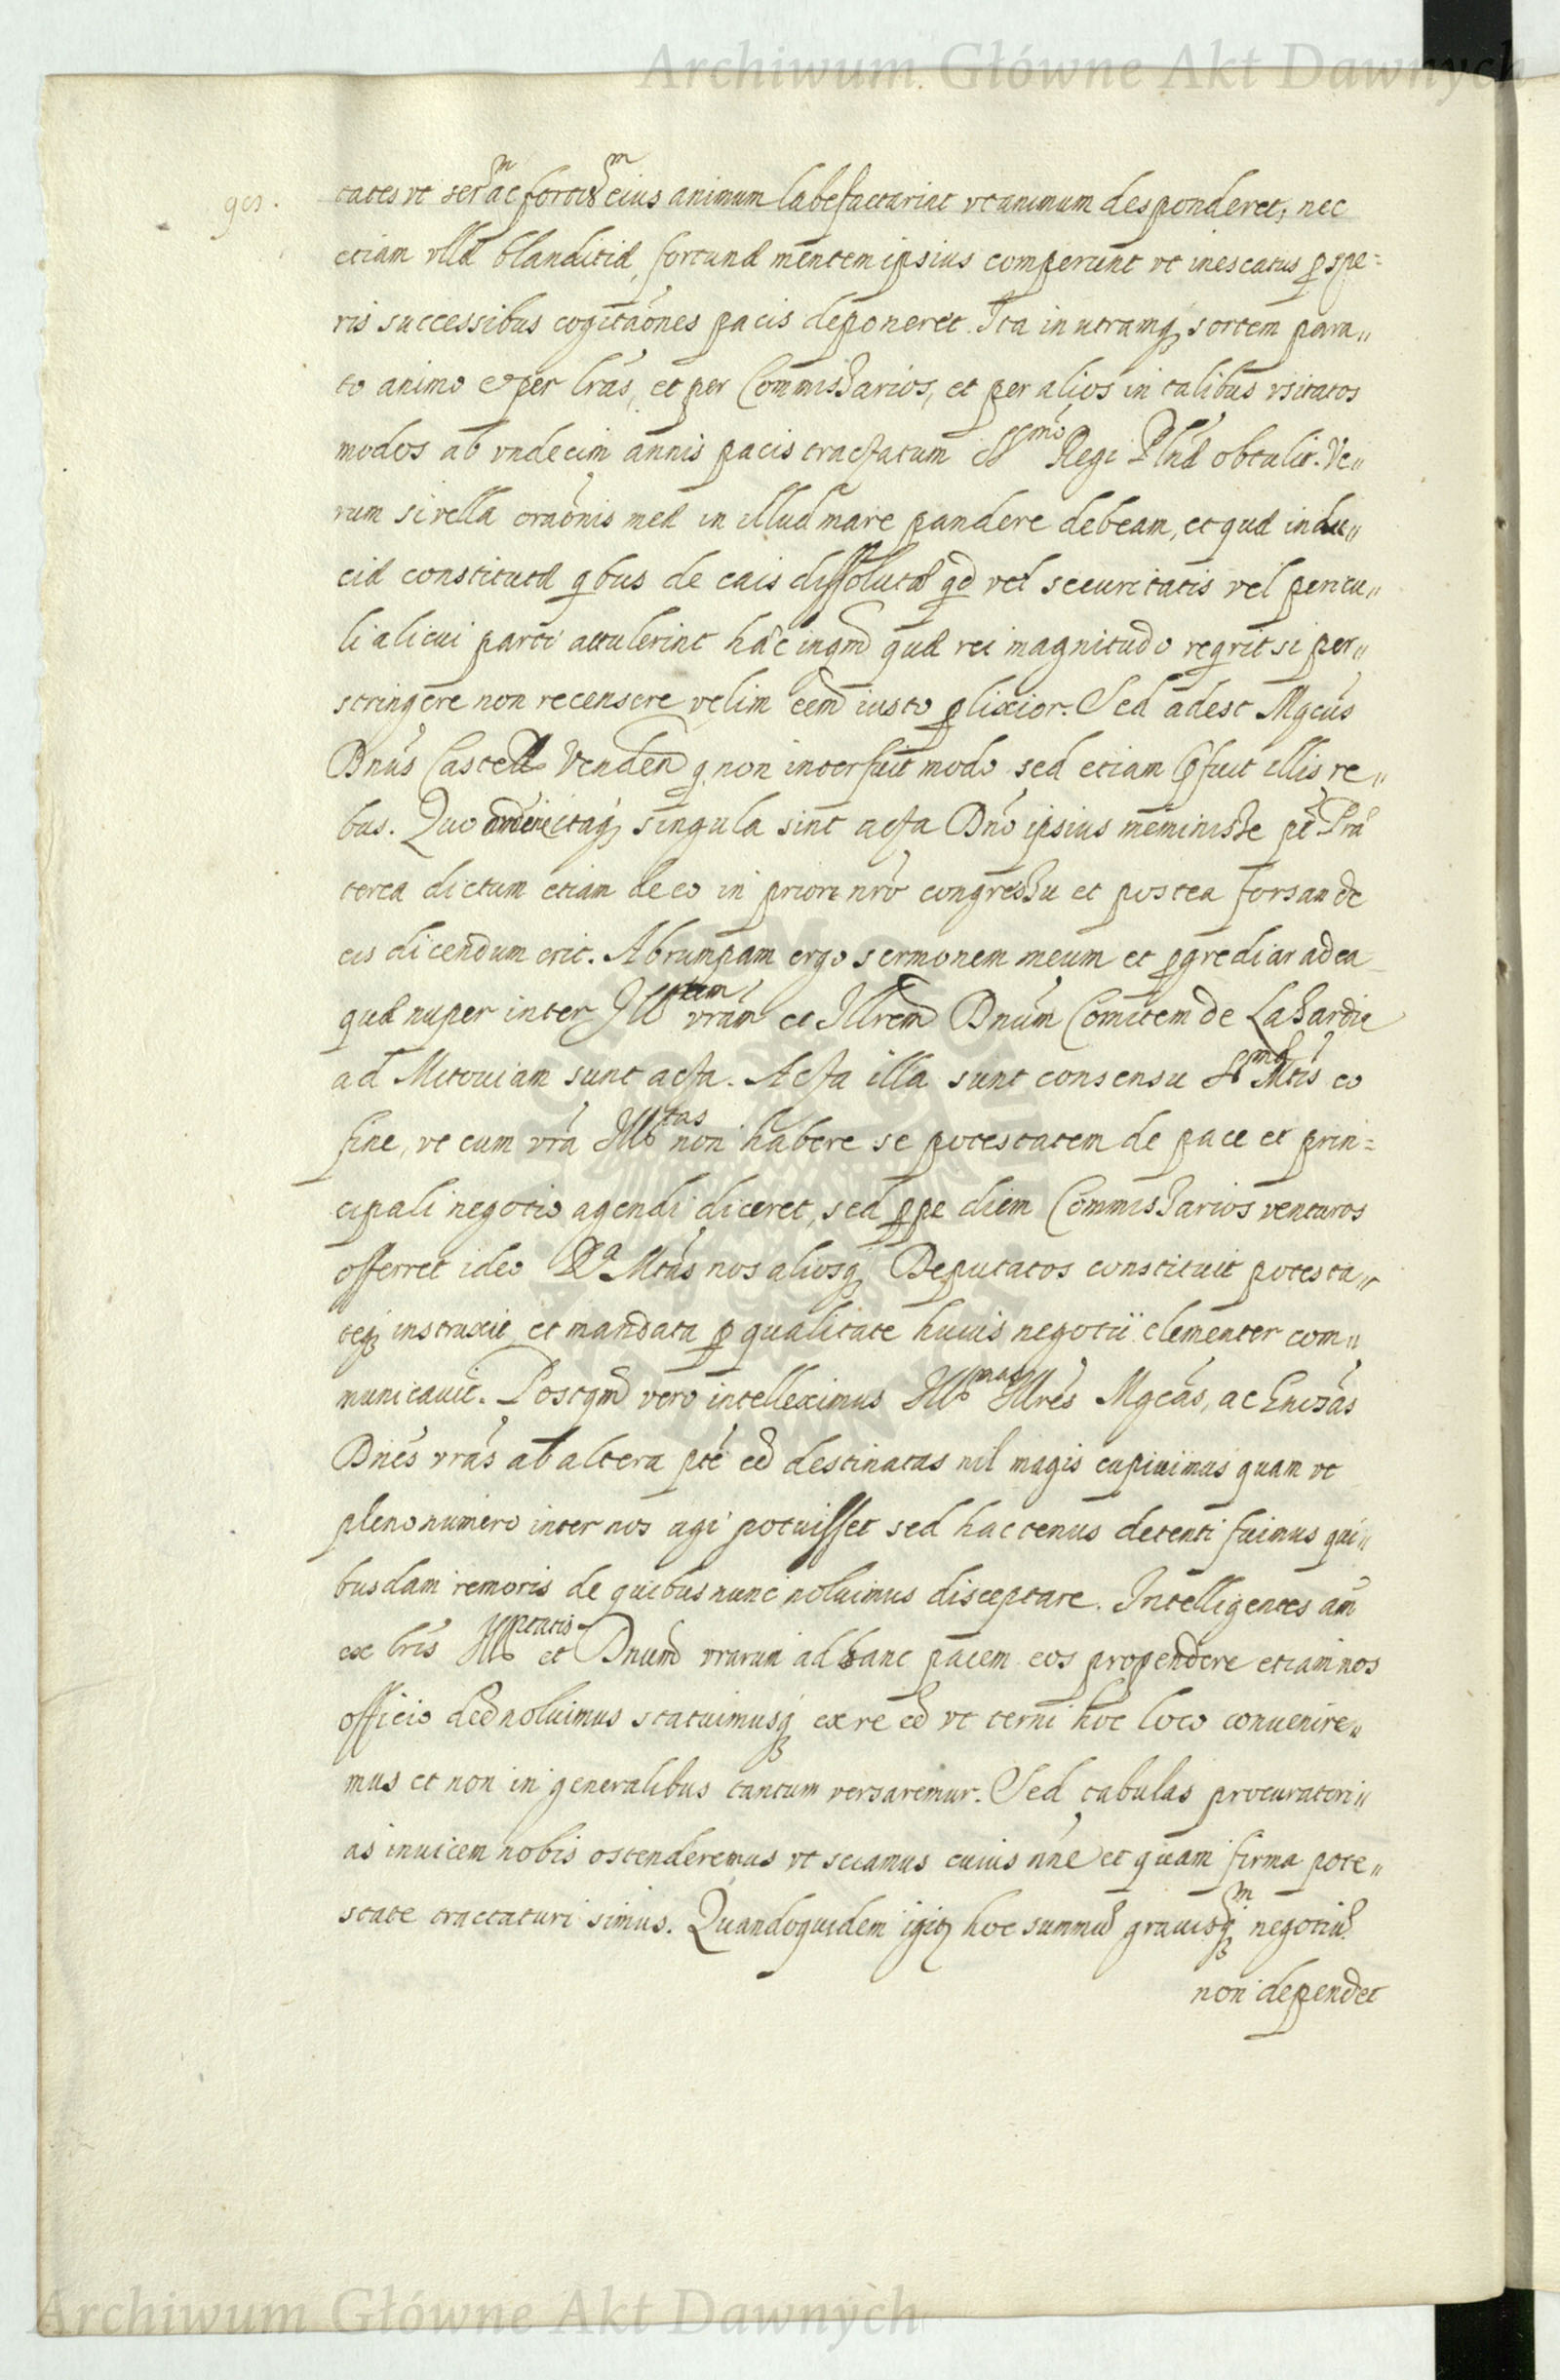 Archiwum Główne Akt Dawnych
tates vt serm ac fortis eius animum labefactariat vt animum desponderet, nec
etiam vllæ blanditiæ, fortunæ mentem ipsius comperunt vt inescatus pspe=
ris successibus cogitaones pacis deponeret. Ita in utramq sortem para„
to animo et per lras, et per Commissarios, et per alios in talibus vsitatos
modos ab vndecim annis pacis tractatum Sermo Regi Plnæ obtulit. Ve„
rum si vella oraonis meæ in illud mare pandere debeam, et quæ indu„
ciæ constitutæ qbus de cais dissolutæ qd vel securitatis vel pericu„
li alicui parti attulerint hac inqm quæ rei magnitudo reqrit si per„
stringere non recensere velim eem iusto plixior. Sed adest Mgcus
Dnus Castell Venden q non interfuit modo sed etiam pfuit illis re„
bus. Quo ordine itaq singula sint acta Dno ipsius meminisse pt Præ
terea dictum etiam de eo in priori nro congressu et postea forsan de
eis dicendum erit. Abrumpam ergo sermonem meum et pgrediar ad ea
quæ nuper inter Illtem vram et Illrem Dnum Comitem de Lagardie
ad Mitoviam sunt acta. Acta illa sunt consensu Sermæ Mtis eo
fine, vt cum vra Illtas non habere se potestatem de pace et prin=
cipali negotio agendi diceret, sed ppe diem Commissarios venturos
offerret ideo Ra Mtas nos aliosq Deputatos constituit potesta„
teq instruxit et mandata p qualitate huius negotii clementer com„
municavit. Postqm vero intelleximus Illmas Illres Mgcas, ac Gnosas
Dnes vras ab altera pte eo destinatas nil magis cupivimus quam vt
pleno numero inter nos agi potuisset sed hactenus detenti fuimus qui„
busdam remoris de quibus nunc noluimus disceptare. Intelligentes am
ex lris Illptatis et Dnum vrarum ad hanc pacem eos propendere etiam nos
officio deeē noluimus statuimusq ex re eē vt terni hoc loco convenire„
mus et non in generalibus tantum versaremur. Sed tabulas procuratori„
as invicem nobis ostenderemus vt sciamus cuius nne et quam firma pote„
state tractaturi simus. Quandoquidem igitr hoc summū gravisqm negotiū
non dependet
Archiwum Główne Akt Dawnych